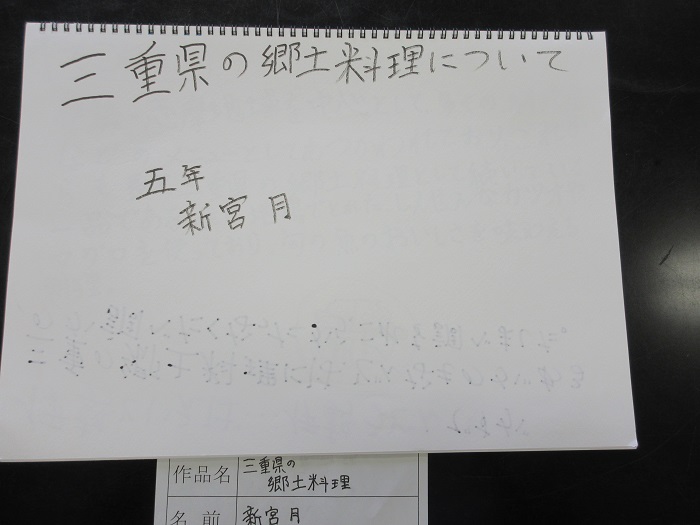 三重県の郷土料理について
五年
新宮月
作品名
三重県の
郷土料理
名前
新宮月